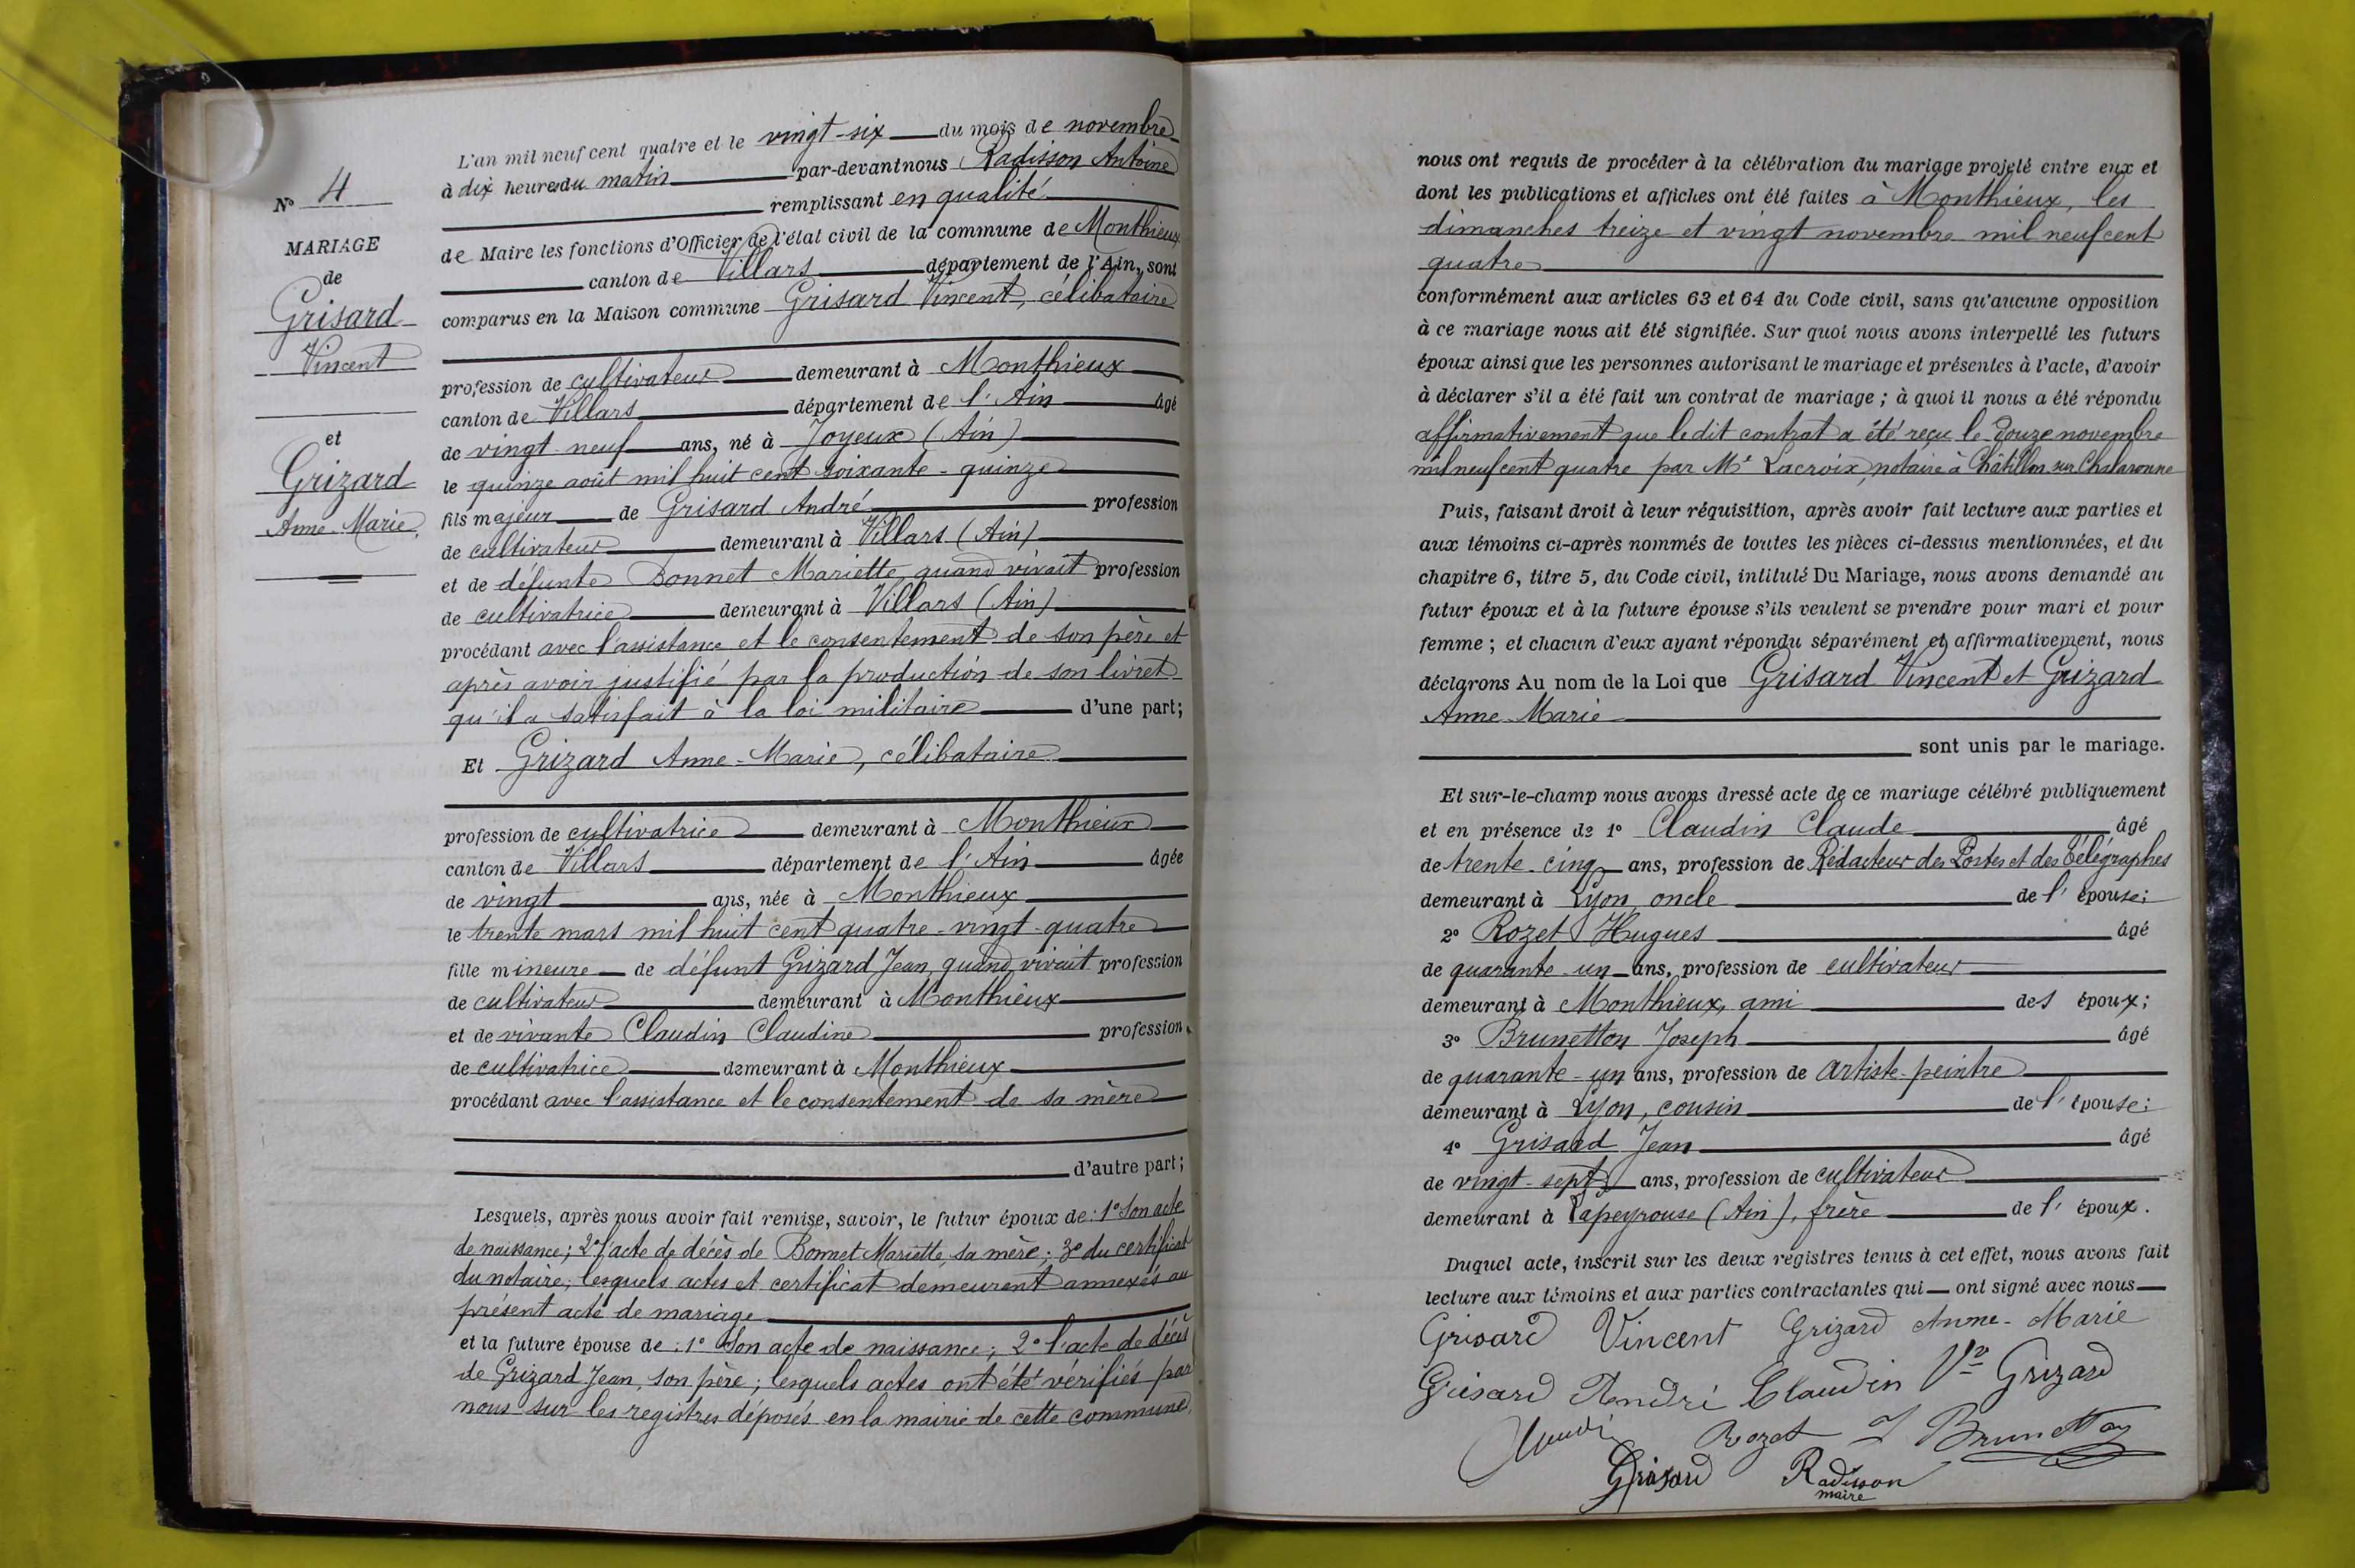 N° 4
MARIAGE
de
Grisard
Vincent
et
Grizard
Anne-Marie.
L'an mil neuf cent quatre et le vingt-six du mois de novembre
à dix heures du matin par-devant nous Radisson Antoine
remplissant en qualité
de Maire les fonctions d'Officier de l'état civil de la commune de Monthieux
canton de Villars département de l'Ain, sont
comparus en la Maison commune Grisard Vincent, célibataire
profession de cultivateur demeurant à Monthieux
canton de Villars département de l'Ain âgé
de vingt-neuf ans, né à Joyeux (Ain)
le quinze août mil huit cent soixante-quinze
fils majeur de Grisard André profession
de cultivateur demeurant à Villars (Ain)
et de défunte Bonnet Mariette quand vivait profession
de cultivatrice demeurant à Villars (Ain)
procédant avec l'assistance et le consentement de son père et
après avoir justifié par la production de son livret
qu'il a satisfait à la loi militaire d'une part;
Et Grizard Anne-Marie, célibataire
profession de cultivatrice demeurant à Monthieux
canton de Villars département de l'Ain âgée
de vingt ans, née à Monthieux
le trente mars mil huit cent quatre-vingt-quatre
fille mineure de défunt Grizard Jean, quand vivait profession
de cultivateur demeurant à Monthieux
et de vivante Claudin Claudine profession
de cultivatrice demeurant à Monthieux
procédant avec l'assistance et le consentement de sa mère
d'autre part;
Lesquels, après nous avoir fait remise, savoir, le futur époux de: 1° Son acte
de naissance; 2° l'acte de décès de Bonnet Mariette, sa mère; 3° du certificat
du notaire; lesquels actes et certificat demeurent annexés au
présent acte de mariage
et la future épouse de: 1° Son acte de naissance; 2° l'acte de décès
de Grizard Jean, son père; lesquels actes ont été vérifiés par
nous sur les registres déposés en la mairie de cette commune,
nous ont requis de procéder à la célébration du mariage projeté entre eux et
dont les publications et affiches ont été faites à Monthieux, les
dimanches treize et vingt novembre mil neuf cent
quatre
conformément aux articles 63 et 64 du Code civil, sans qu'aucune opposition
à ce mariage nous ait été signifiée. Sur quoi nous avons interpellé les futurs
époux ainsi que les personnes autorisant le mariage et présentes à l'acte, d'avoir
à déclarer s'il a été fait un contrat de mariage; à quoi il nous a été répondu
affirmativement que ledit contrat a été reçu le douze novembre
mil neuf cent quatre par Me Lacroix, notaire à Châtillon sur Chalaronne
Puis, faisant droit à leur réquisition, après avoir fait lecture aux parties et
aux témoins ci-après nommés de toutes les pièces ci-dessus mentionnées, et du
chapitre 6, titre 5, du Code civil, intitulé Du Mariage, nous avons demandé au
futur époux et à la future épouse s'ils veulent se prendre pour mari et pour
femme; et chacun d'eux ayant répondu séparément et affirmativement, nous
déclarons Au nom de la Loi que Grisard Vincent et Grizard
Anne-Marie
sont unis par le mariage.
Et sur-le-champ nous avons dressé acte de ce mariage célébré publiquement
et en présence de 1° Claudin Claude âgé
de trente-cinq ans, profession de Rédacteur des Postes et des Télégraphes
demeurant à Lyon, oncle de l'épouse;
2° Rozet Hugues âgé
de quarante-un ans, profession de cultivateur
demeurant à Monthieux, ami des époux;
3° Brunetton Joseph âgé
de quarante-un ans, profession de artiste-peintre
demeurant à Lyon, cousin de l'épouse;
4° Grisard Jean âgé
de vingt-sept ans, profession de cultivateur
demeurant à Lapeyrouse (Ain), frère de l'époux.
Duquel acte, inscrit sur les deux registres tenus à cet effet, nous avons fait
lecture aux témoins et aux parties contractantes qui ont signé avec nous
Grisard Vincent Grizard Anne-Marie
Grisard Andri Claudin Vve Grizard
Rozet J Brunetton
Grisard Radisson
maire